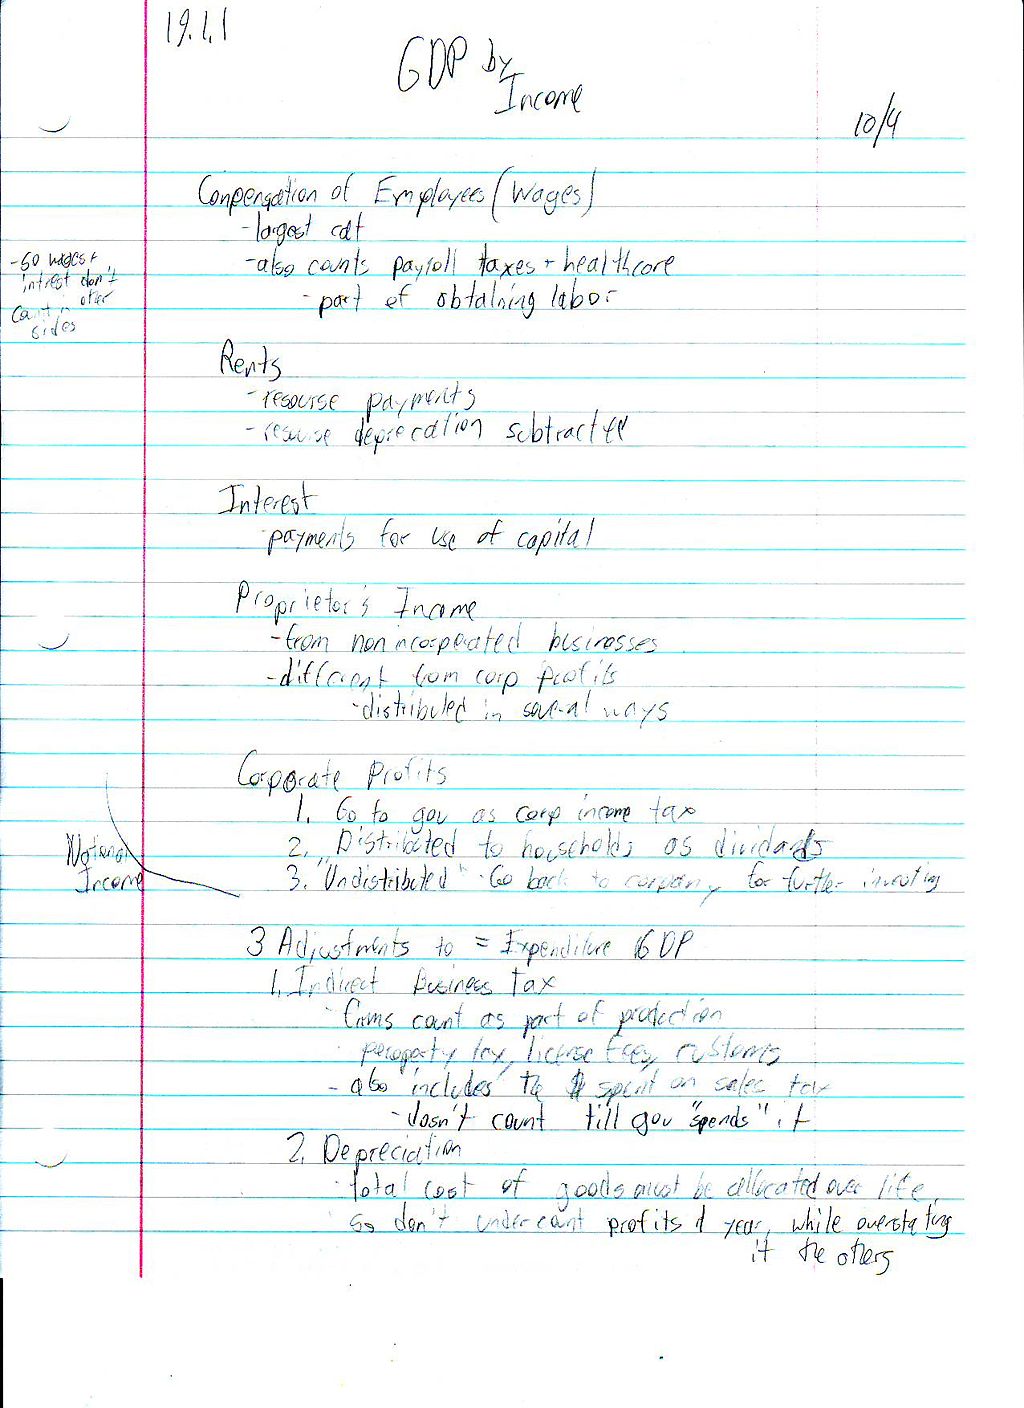 19.1.1
GDP by
Income
10/4
Conpensation of Employees (Wages)
-largest cat
-also counts payroll taxes + healthcare
-part of obtaining labor
-so wages +
intrest don't
count in other
sides
Rents
-resourse payments
-resourse deprecation subtracted
Interest
-payments for use of capital
Proprietor's Income
-from nonincorperated businesses
-different from corp profits
-distributed in several ways
Corporate Profits
1. Go to gov as corp income tax
2. Distributed to households as dividands
3. "Undistributed" - Go back to company for further investing
National
Income
3 Adjustments to = Expenditure GDP
1. Indirect Business Tax
- firms count as part of production
property tax, license fees, customs
- also includes the $ spent on sales tax
-dosn't count till gov "spends" it
2. Depreciation
-total cost of goods must be allocated over life,
so don't under count profits 1 year, while overstating
it the others